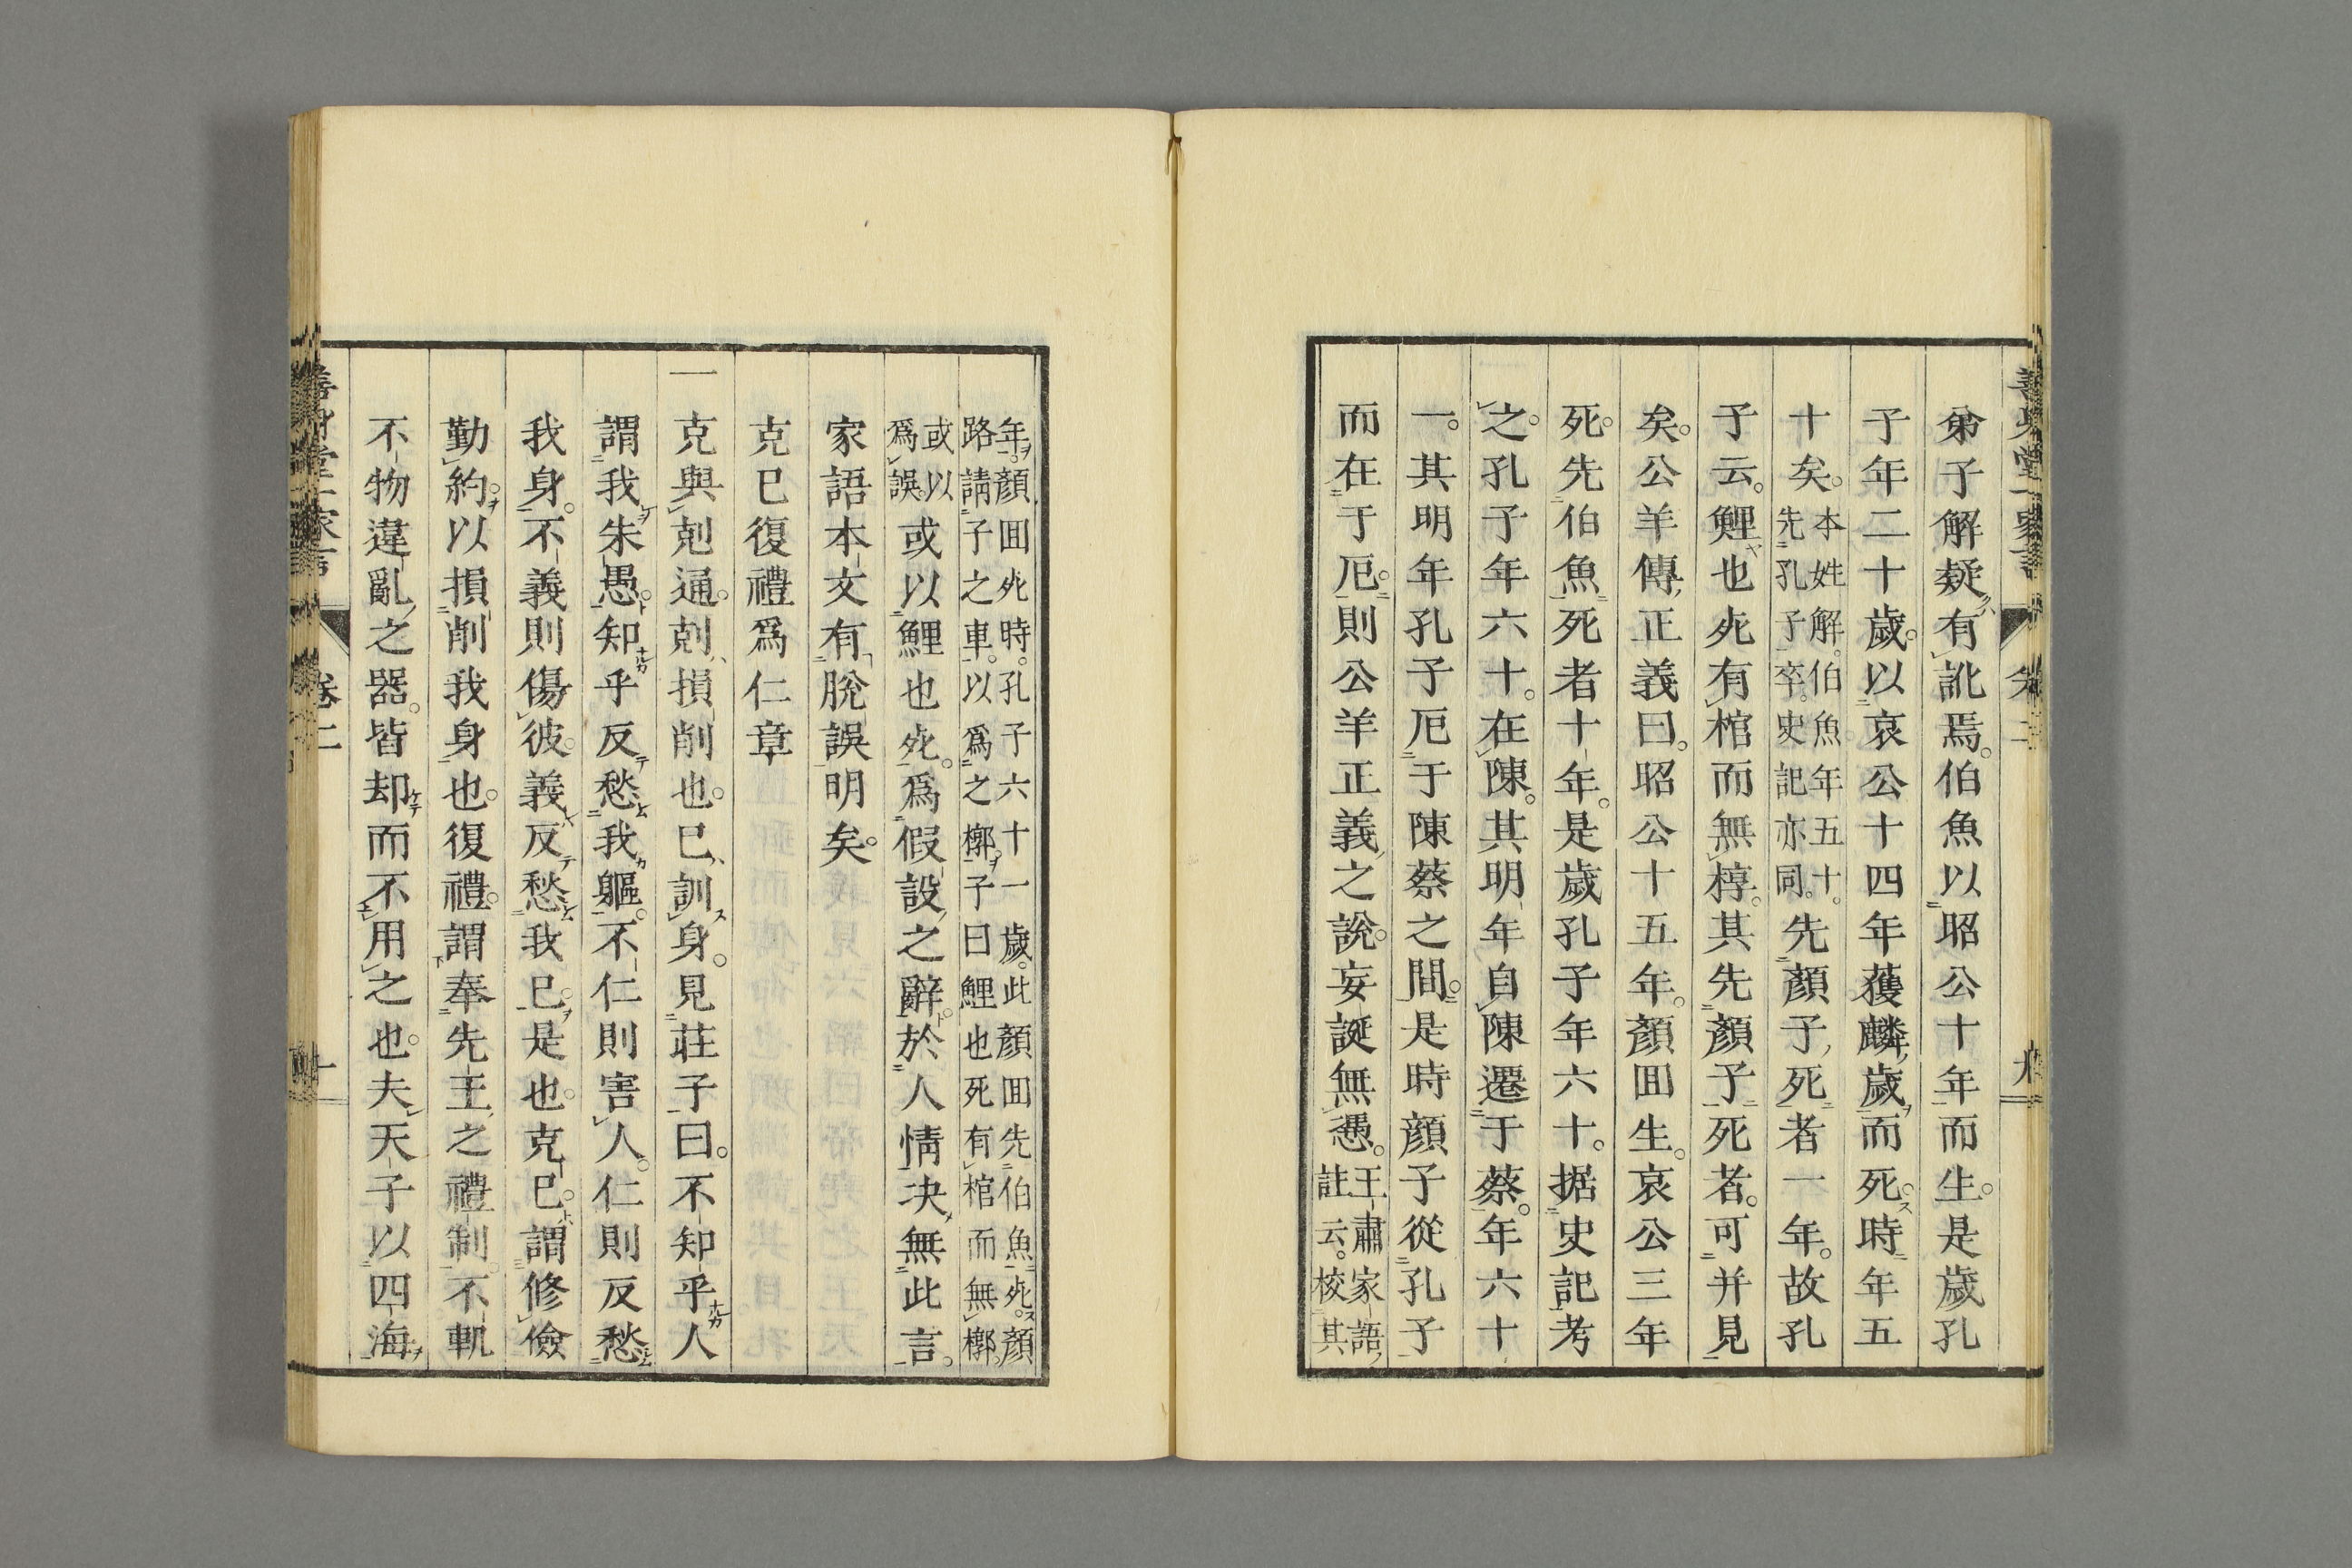 弟子解疑有訛焉。伯魚以昭公十年而生。是歲孔
子年二十歲。以哀公十四年獲麟歲而死。時年五
十矣。本姓解。伯魚年五十。先孔子卒。史記亦同。先顏子死者一年。故孔
子云。鯉也死有棺而無椁。其先顏子死者。可并見
矣。公羊傳正義曰。昭公十五年。顏囬生。哀公三年
死。先伯魚死者十年。是歲孔子年六十。据史記考
之。孔子年六十。在陳。其明年自陳遷于蔡。年六十
一。其明年孔子厄于陳蔡之間。是時顏子從孔子
而在于厄。則公羊正義之說。妄誕無憑。王肅家語註云。校其
年。顏囬死時。孔子六十一歲。此顏囬先伯魚死。顏
路請子之車。以爲之槨。子曰鯉也死有棺而無槨。
或以爲誤。或以鯉也死。爲假設之辭。於人情决無此言。
家語本文有脫誤明矣。
克巳復禮爲仁章
一 克與剋通。剋損削也。巳訓身。見莊子曰。不知乎人
謂我朱愚。知乎反愁我軀。不仁則害人。仁則反愁
我身。不義則傷彼。義反愁我巳。是也。克巳。謂修儉
勤約。以損削我身也。復禮。謂奉先王之禮制。不軌
不物違亂之器。皆却而不用之也。夫天子以四海
卷二